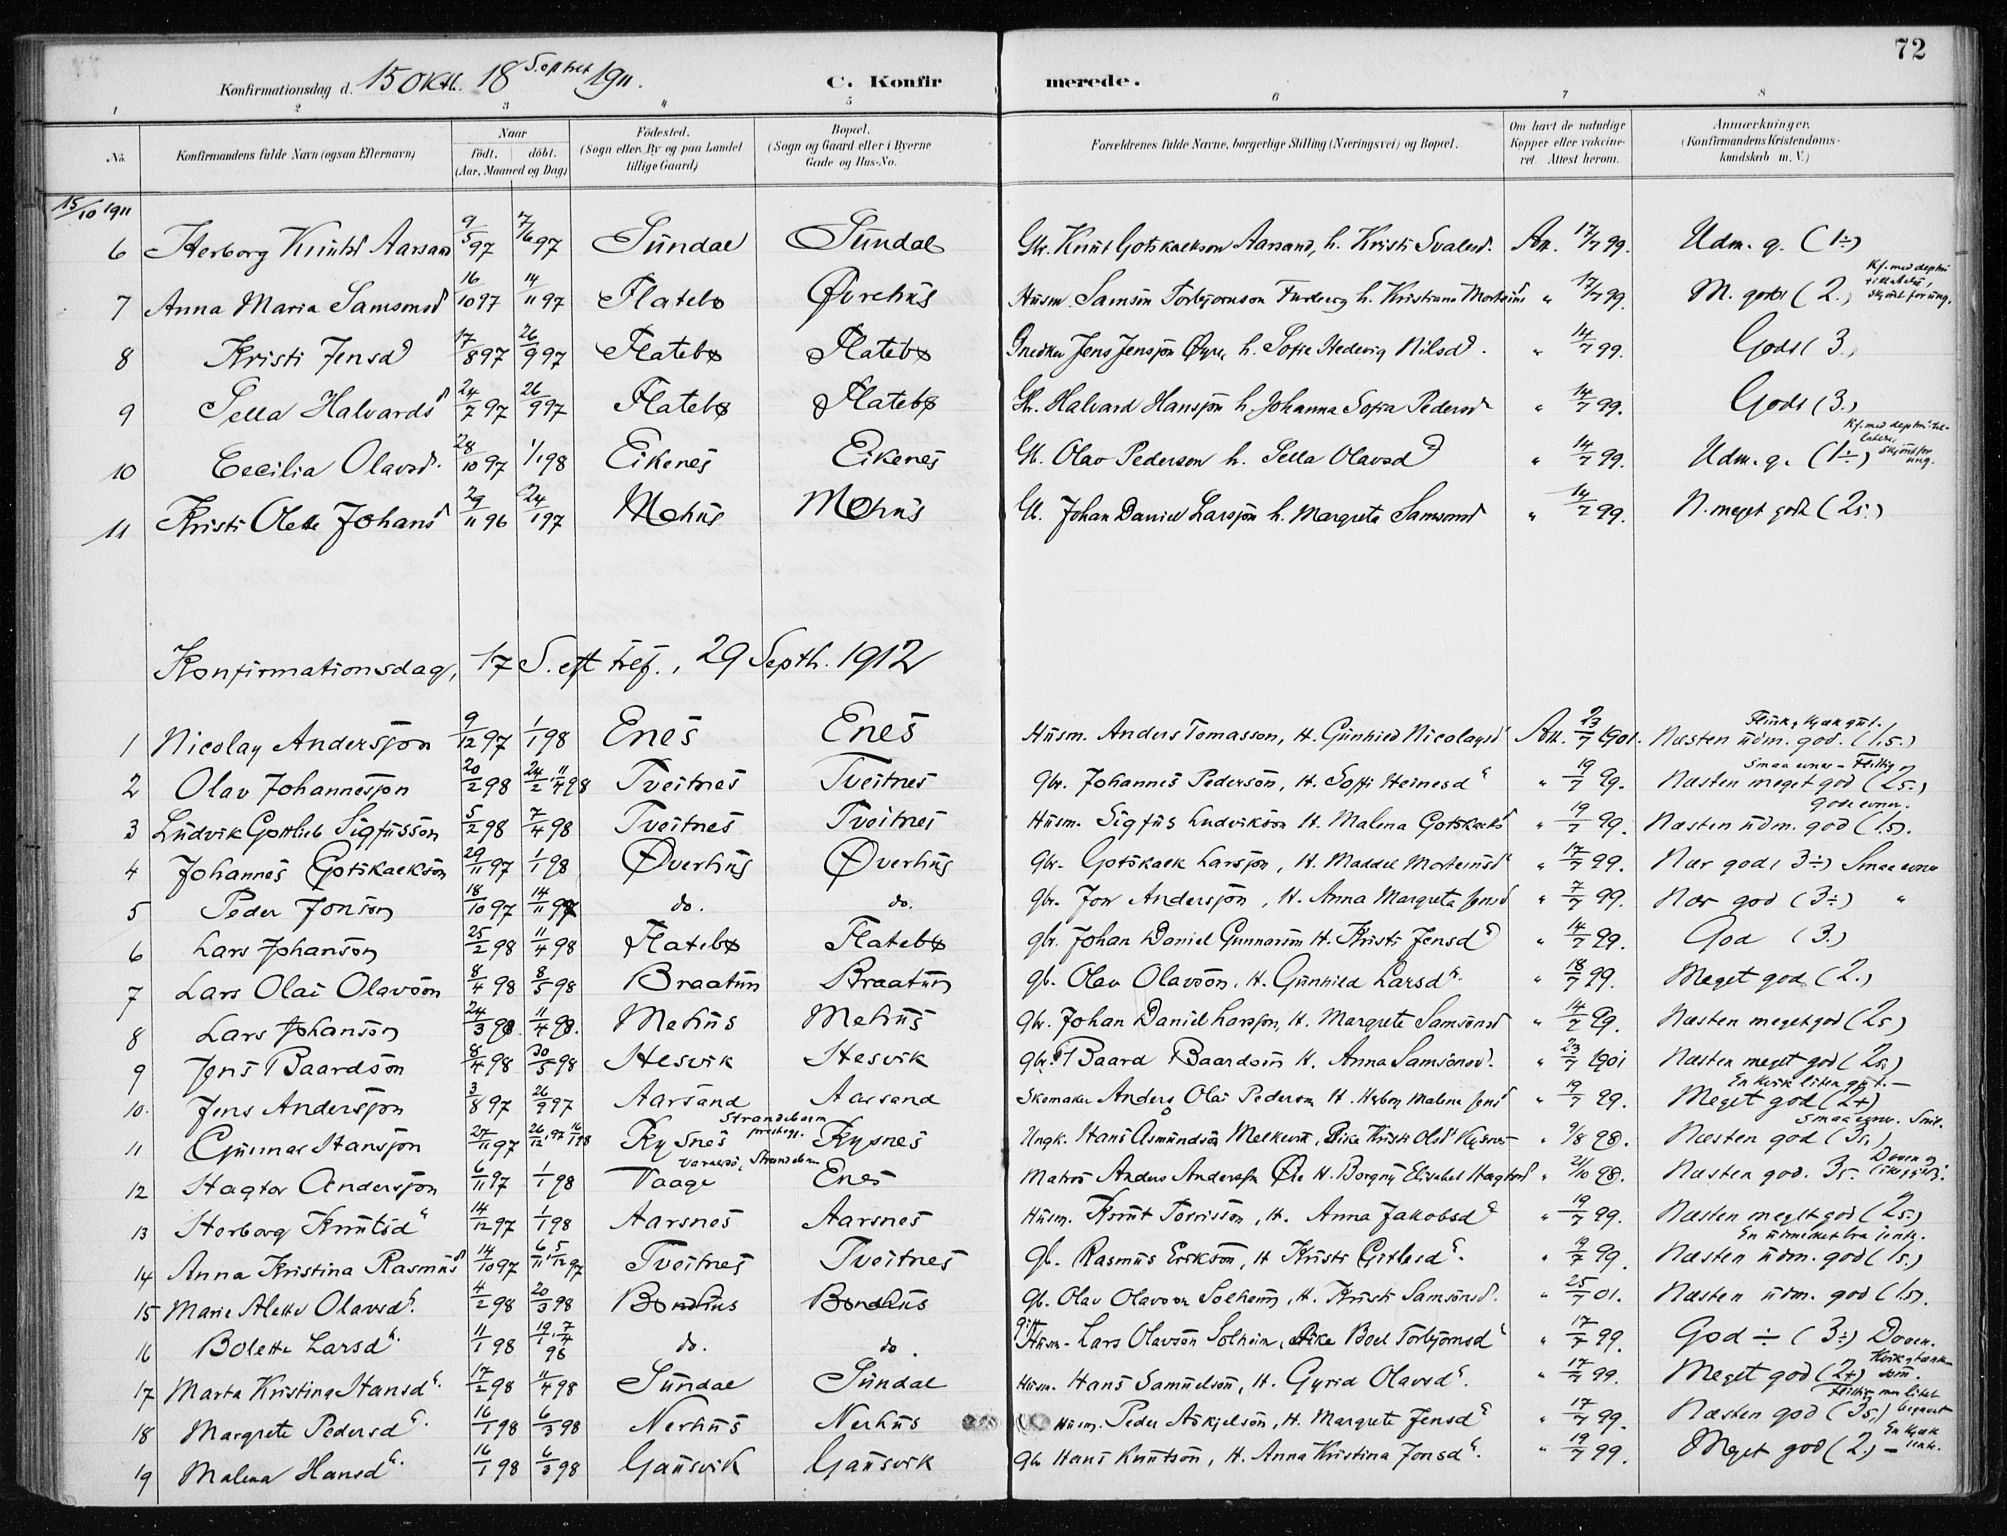 72
Konfirmationsdag d. 15 Okt. 18 S. e. 1911.
C. Konfirmerede.
1 2 3 4 5 6 7 8
No.
Konfirmandens fulde Navn (ogsaa Efternavn)
Naar
født. døbt.
(Aar, Maaned og Dag)
Fødested.
(Sogn eller By og paa Landet tillige Gaard)
Bopæl.
(Sogn og Gaard eller i Byerne Gade og Hus-No.
Forældrenes fulde Navne, borgerlige Stilling (Næringsvei) og Bopæl.
Om havt de naturlige Kopper eller vaccineret. Attest herom.
Anmærkninger.
(Konfirmandens Kristendomskundskab m. V.)
15/10 1911
6 Herborg Knutsd Aarsand 9/5 97 7/6 97 Sundal Sundal Gbr. Knut Gotskalkson Aarsand, h. Kristi Svalesd. Att. 17/7 99. Udm. g. (1÷)
7 Anna Maria Samsonsd 16/10 97 14/11 97 Flatebø Øvrehus Husm. Samson Torbjørnson Furberg h. Kristiana Morteins " 17/7 99. M. godt (2.) Kf. med dept. tilladelse, skjønt for ung.
8 Kristi Jensd 17/8 97 26/9 97 Flatebø Flatebø Snedker Jens Jensjøn Øyre, h. Sofie Hedevig Nilsd. " 14/7 99. Godt (3.)
9 Sella Halvardsd 24/7 97 26/9 97 Flatebø Flatebø Gbr. Halvard Hansjøn h. Johanna Sofia Pedersd " 14/7 99. Godt (3.)
10 Cecilia Olavsd. 28/10 97 1/1 98 Eikenes Eikenes Gb. Olav Pederson h. Sella Olavsd " 14/7 99. Udm. g. (1÷) Kf. med dept. tilladelse, skjønt for ung.
11 Kristi Olette Johansd 29/11 96 24/1 97 Mehus Mehus Gb. Johan Daniel Larsjøn h. Margreta Samsonsd " 14/7 99. N. meget godt (2 5.)
Konfirmationsdag, 17 S. eft. tref., 29 Septb. 1912
1 Nicolay Andersjøn 9/12 97 1/1 98 Enes Enes Husm. Anders Tomasson, H. Gunhild Nicolaysd Att. 23/7 1901. Næsten udm. god. (1,5.) Flink, kjæk gut.
2 Olav Johannesjøn 20/2 98 24/2, 11/4 98 Tveitnes Tveitnes gbr. Johannes Pederson, H. Soffi Heinesd " 19/7 99. Næsten meget god (2 5.) Smaa evner – Flittig
3 Ludvik Gottlieb Sigfusson 5/2 98 7/4 98 Tveitnes Tveitnes Husm. Sigfus Ludvikson H. Malena Gotskalksd " 19/7 99. Næsten udm. god (1.5). Gode evner.
4 Johannes Gotskalkson 29/11 97 1/1 98 Øverhus Øverhus Gbr. Gotskalk Larsjøn, H. Maddel Morteinsd " 17/7 99. Nær god (3÷) Smaa evner
5 Peder Jonson 18/10 97 14/11 97 do. do. gbr. Jon Andersjøn, H. Anna Margreta Jensd " 7/7 99. Nær god (3÷) "
6 Lars Johanson 25/2 98 11/4 98 Flatebø Flatebø gbr. Johan Daniel Gunnarson H. Kristi Jensd " 14/7 99. God (3.)
7 Lars Olai Olavson 8/4 98 8/5 98 Braatun Braatun gb. Olav Olavson, H. Gunhild Larsd. " 18/7 99. Meget god (2.)
8 Lars Johanson 24/3 98. 11/4 98. Mehus Mehus Gbr. Johan Daniel Larsjon, H. Margrete Samsonsd " 14/7 99. Næsten meget god (2 5)
9 Jens Baardson 8/4 98 30/5 98 Hesvik Hesvik gbr. Baard Baardson H. Anna Samsonsd. " 23/7 1901 Næsten meget god (2 5.)
10. Jens Andersjon 3/8 97 26/9 97 Aarsand Aarsand Skomaker Anders Olai Pederson H. Herborg Malene Jensd " 19/7 99. Meget god (2+) En kvik liten gut. –
11 Gunnar Hansjon 27/11 97 26/12 97 16/1 98 Kysnes Strandebarm prestegj. Kysnes Ungk. Hans Asmundson Melkevik, Pike Kristi Olsd Kysnes " 9/8 98. Næsten god (3 5.) Smaa evner. Snil.
12 Hagtor Andersjon 6/11 97 1/1 98 Vaage Varaldsø, Strandebarm Enes Matros Anders Andersjon Øie H. Borgny Elisabet Hagtorsd " 21/10 98. Næsten god. 3 5. Doven og
13 Herborg Knutsd 14/12 97 1/1 98 Aarsnes Aarsnes Husm. Knut Torrisson, H. Anna Jakobsd " 19/7 99. Næsten meget god (2 5.)
14 Anna Kristina Rasmusd 14/10 97 6/11, 5/12 97 Tveitnes Tveitnes gb. Rasmus Erikson, H Kristi Gitlesd. " 19/7 99. Næsten udm. god (1 5.) En udmerket bra jente.
15 Marie Alette Olavsd. 4/2 98 20/3 98 Bondhus Bondhus Gb. Olav Olavson Solheim, H. Kristi Samsonsd. " 25/7 01. Næsten udm. god (1 5).
16 Bolette Larsd. 11/1 98 19/1, 7/4 98 do. do. gift Husm. Lars Olavson Solheim, Pike Boel Torbjørnsd " 17/7 99. God ÷ (3÷) Doven.
17 Marta Kristina Hansd. 17/2 98 11/4 98 Sundal Sundal Husm. Hans Samuelson, H. Gyrid Olavsd. " 17/7 99. Meget god (2+) Kvik, tænksom.
18 Margrete Pedersd. 16/1 98 6/3 98 Nerhus Nerhus Husm. Peder Askjelson, H. Margrete Jensd " 17/7 99. Næsten god (3 5.) Flittig men litet begavet
19 Malena Hansd. 16/1 98 6/3 98 Gausvik Gausvik Gb Hans Knutson, H. Anna Kristina Jonsd. " 19/7 99. Meget god (2.) – En kjæk jente.